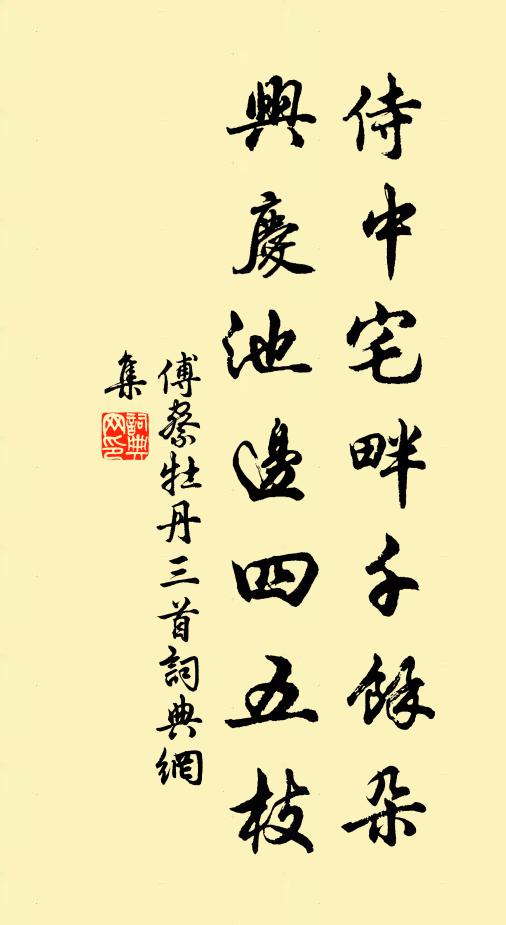 侍中宅畔千餘朵
興慶池邊四五枝
傅察牡丹三首詞典網
集
詞典網印